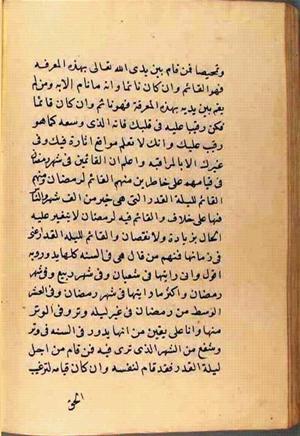 وتحيصا فمن قام بين يدى الله تعالى بهذه المعرفه
فهو القائم وان كان نائما وانه مانام الا به ومن لم
يقم بين يديه بهذه المعرفة فهو نائم وان كان قائما
فكن رقيبا عليه فى قلبك فانه الذى وسعه كما هو
رقيب عليك وانك لا تعلم مواقع اثارة فيك وفى
غيرك الا بالمراقبه واعلم ان القائمين فى شهر رمضان
فى قيامهم على خاطرين منهم القائم لرمضان ومنهم
القائم لليلة القدر التى هى خير من الف شهر والناس
فيها على خلاف والقائم فيه لرمضان لا يتغير عليه
الحال بزيادة ولا نقصان والقائم لليلة القدر يتغير
فى زمانها فمنهم من قال هى فى السنه كلها يدور وبه
اقول وانى رايتها فى شعبان وفى شهر ربيع وفى شهر
رمضان واكثر ما رايتها فى شهر رمضان وفى العشر
الاوسط من رمضان فى غير ليلة وتر وفى الوتر
منها وانا على يقين من انها يدور فى السنه فى وتر
وشفع من الشهر الذى ترى فيه فمن قام من اجل
ليلة القدر فقد قام لنفسه وان كان قيامه لترغيب
الحق